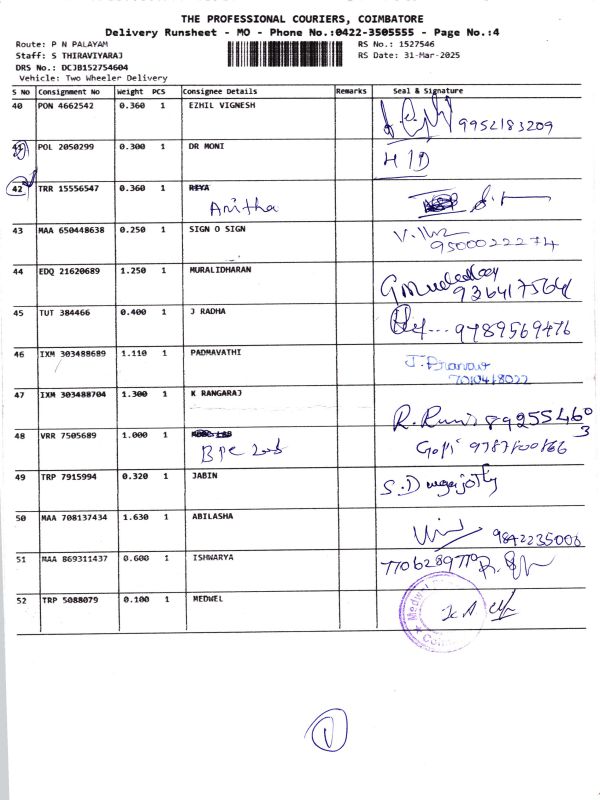 THE PROFESSIONAL COURIERS, COIMBATORE
Delivery Runsheet - MO - Phone No.:0422-3505555 - Page No.:4
Route: P N PALAYAM RS No.: 1527546
Staff: S THIRAVIYARAJ RS Date: 31-Mar-2025
DRS No.: DCJB152754604
Vehicle: Two Wheeler Delivery
S No Consignment No Weight PCS Consignee Details Remarks Seal & Signature
40 PON 4662542 0.360 1 EZHIL VIGNESH 9952183209
41 POL 2050299 0.300 1 DR MONI H/D
42 TRR 15556547 0.360 1 RIYA
Anitha
43 MAA 650448638 0.250 1 SIGN O SIGN
9500022274
44 EDQ 21620689 1.250 1 MURALIDHARAN
45 TUT 384466 0.400 1 J RADHA 9789569476
46 IXM 303488689 1.110 1 PADMAVATHI
7010418022
47 IXM 303488704 1.300 1 K RANGARAJ
48 VRR 7505689 1.000 1
49 TRP 7915994 0.320 1 JABIN
50 MAA 708137434 1.630 1 ABILASHA
9842235006
51 MAA 869311437 0.600 1 ISHWARYA 7706289770
52 TRP 5088079 0.100 1 MEDWEL
1